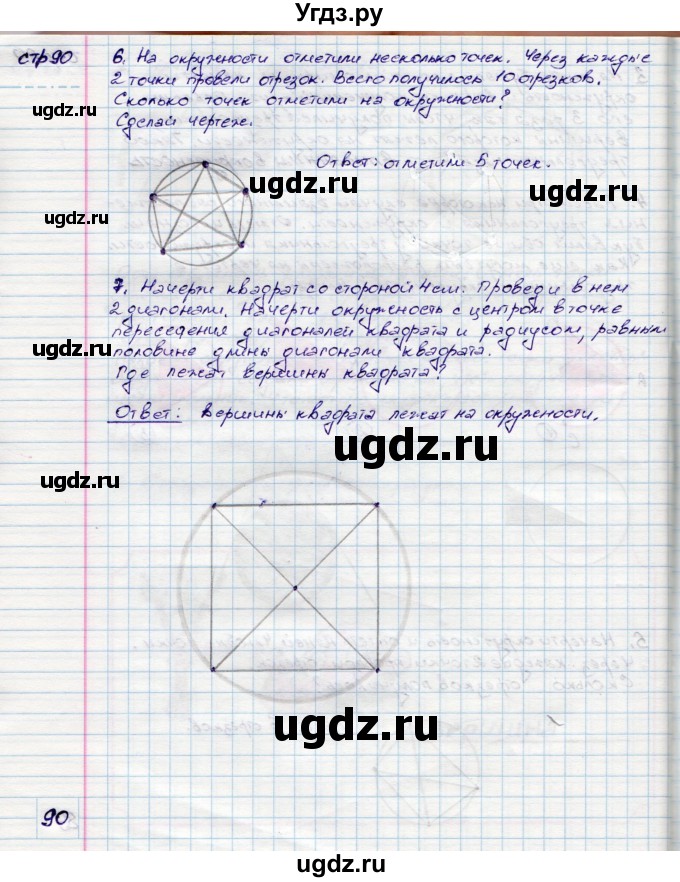 Угдз.ру
стр 90
6. На окружности отметили несколько точек. Через каждые
2 точки провели отрезок. Всего получилось 10 отрезков.
Сколько точек отметили на окружности?
Сделай чертеж.
Ответ: отметили 5 точек.
ugdz.ru
ugdz.ru
ugdz.ru
7. Начерти квадрат со стороной 4 см. Проведи в нем
2 диагонали. Начерти окружность с центром в точке
пересечения диагоналей квадрата и радиусом, равным
ugdz.ru
половине длины диагонали квадрата.
Где лежат вершины квадрата?
Ответ: Вершины квадрата лежат на окружности.
ugdz.ru
ugdz.ru
ugdz.ru
90
ugdz.ru
ugdz.ru